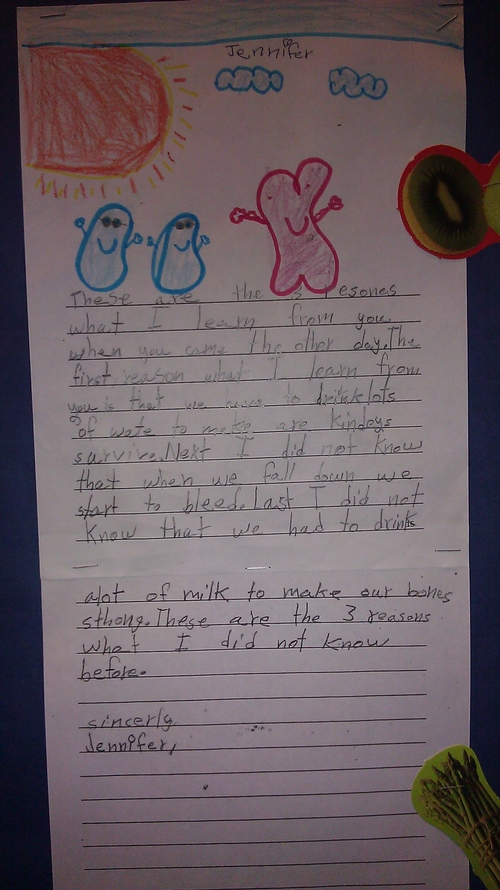 Jennifer
These are the 3 resones
what I learn from you.
when you came the other day. The
first reason what I learn from
you is that we have to drink lots
of wate to make are kindeys
survive. Next I did not know
that when we fall down we
start to bleed. Last I did not
know that we had to drink
alot of milk to make our bones
sthong. These are the 3 reasons
what I did not know
before.
sincerly
Jennifer,